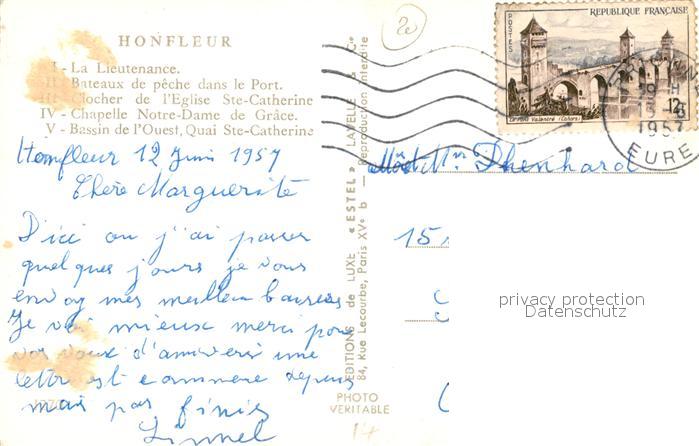 HONFLEUR
I - La Lieutenance.
II - Bateaux de pêche dans le Port.
III - Clocher de l'Eglise Ste-Catherine
IV - Chapelle Notre-Dame de Grâce.
V - Bassin de l'Ouest, Quai Ste-Catherine
Honfleur 12 Juin 1957
Chère Marguerite
D'ici ou j'ai passer
quelques jours je vous
envoy mes meilleur baisers
Je vai mieux merci pour
vos veux d'aniversi une
lettre est commence depuis
mais pas finie
EDITIONS de LUXE «ESTEL» LAVELLE & Cie
84, Rue Lecourbe, Paris XVe — Reproduction interdite
PHOTO
VERITABLE
14
2e
REPUBLIQUE FRANÇAISE
POSTES
12F
Pont Valentré (Cahors)
19 H
13-6
1957
EURE
Mr
15
privacy protection
Datenschutz